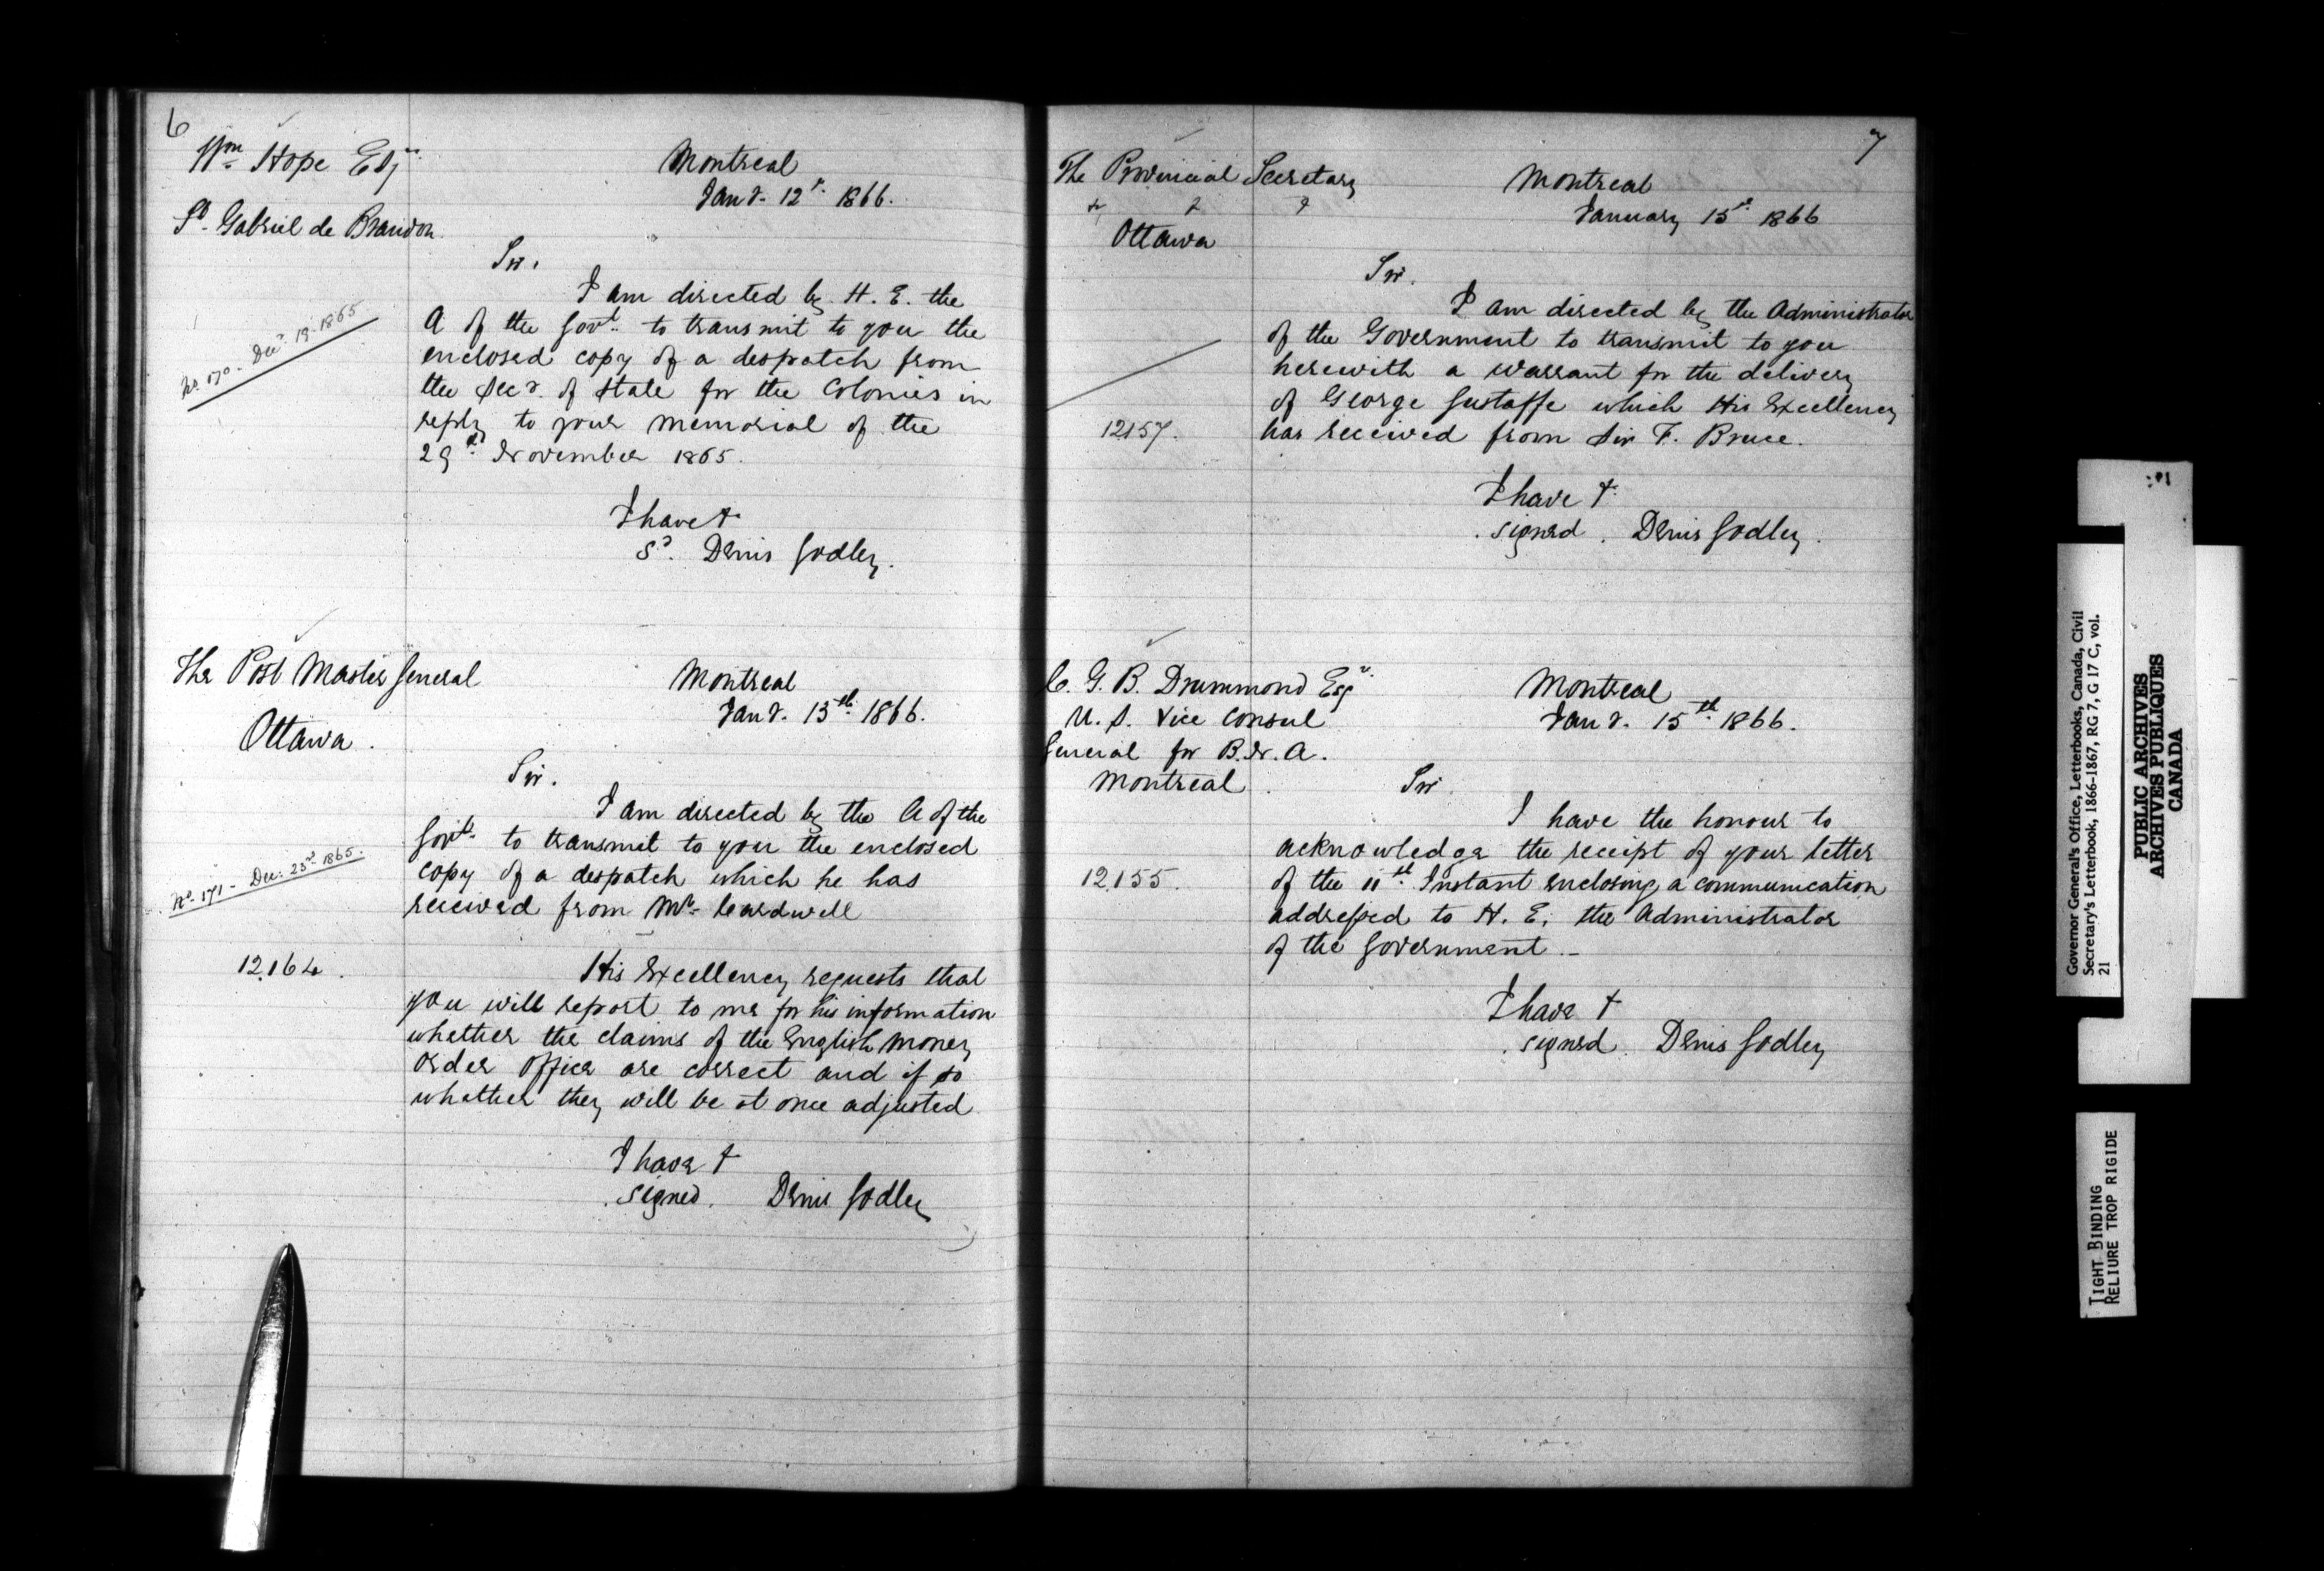 6
Wm Hope Esqr
Montreal
Jany. 12th 1866.
St. Gabriel de Brandon
Sir,
I am directed by H. E. the
A of the Govt. to transmit to you the
No. 170 - Decr 19. 1865
enclosed copy of a despatch from
the Secy. of State for the Colonies in
reply to your memorial of the
29th November 1865.
I have &
Sd. Denis Godley.
The Post Master General
Montreal
Jany. 13th 1866.
Ottawa.
Sir.
I am directed by the A of the
Govt. to transmit to you the enclosed
No. 171 - Dec. 23rd 1865.
copy of a despatch which he has
received from Mr. Cardwell
12164.
His Excellency requests that
you will report to me for his information
whether the claims of the English Money
Order Office are correct and if so
whether they will be at once adjusted
I have &
signed. Denis Godley
7
The Provincial Secretary
Montreal
January 15th 1866
Ottawa
Sir.
I am directed by the Administrator
of the Government to transmit to you
herewith a warrant for the delivery
of George Gustaffe which His Excellency
12157.
has received from Sir F. Bruce.
I have &
signed. Denis Godley.
C. G. B. Drummond Esqr.
Montreal
U. S. Vice Consul
Jany. 15th 1866.
General for B. N. A.
Montreal.
Sir
I have the honour to
acknowledge the receipt of your letter
12155.
of the 11th Instant enclosing a communication
addressed to H. E. the Administrator
of the Government.-
I have &
signed. Denis Godley
Governor General's Office, Letterbooks, Canada, Civil
Secretary's Letterbook, 1866-1867, RG 7, G 17 C, vol.
21
PUBLIC ARCHIVES
ARCHIVES PUBLIQUES
CANADA
TIGHT BINDING
RELIURE TROP RIGIDE